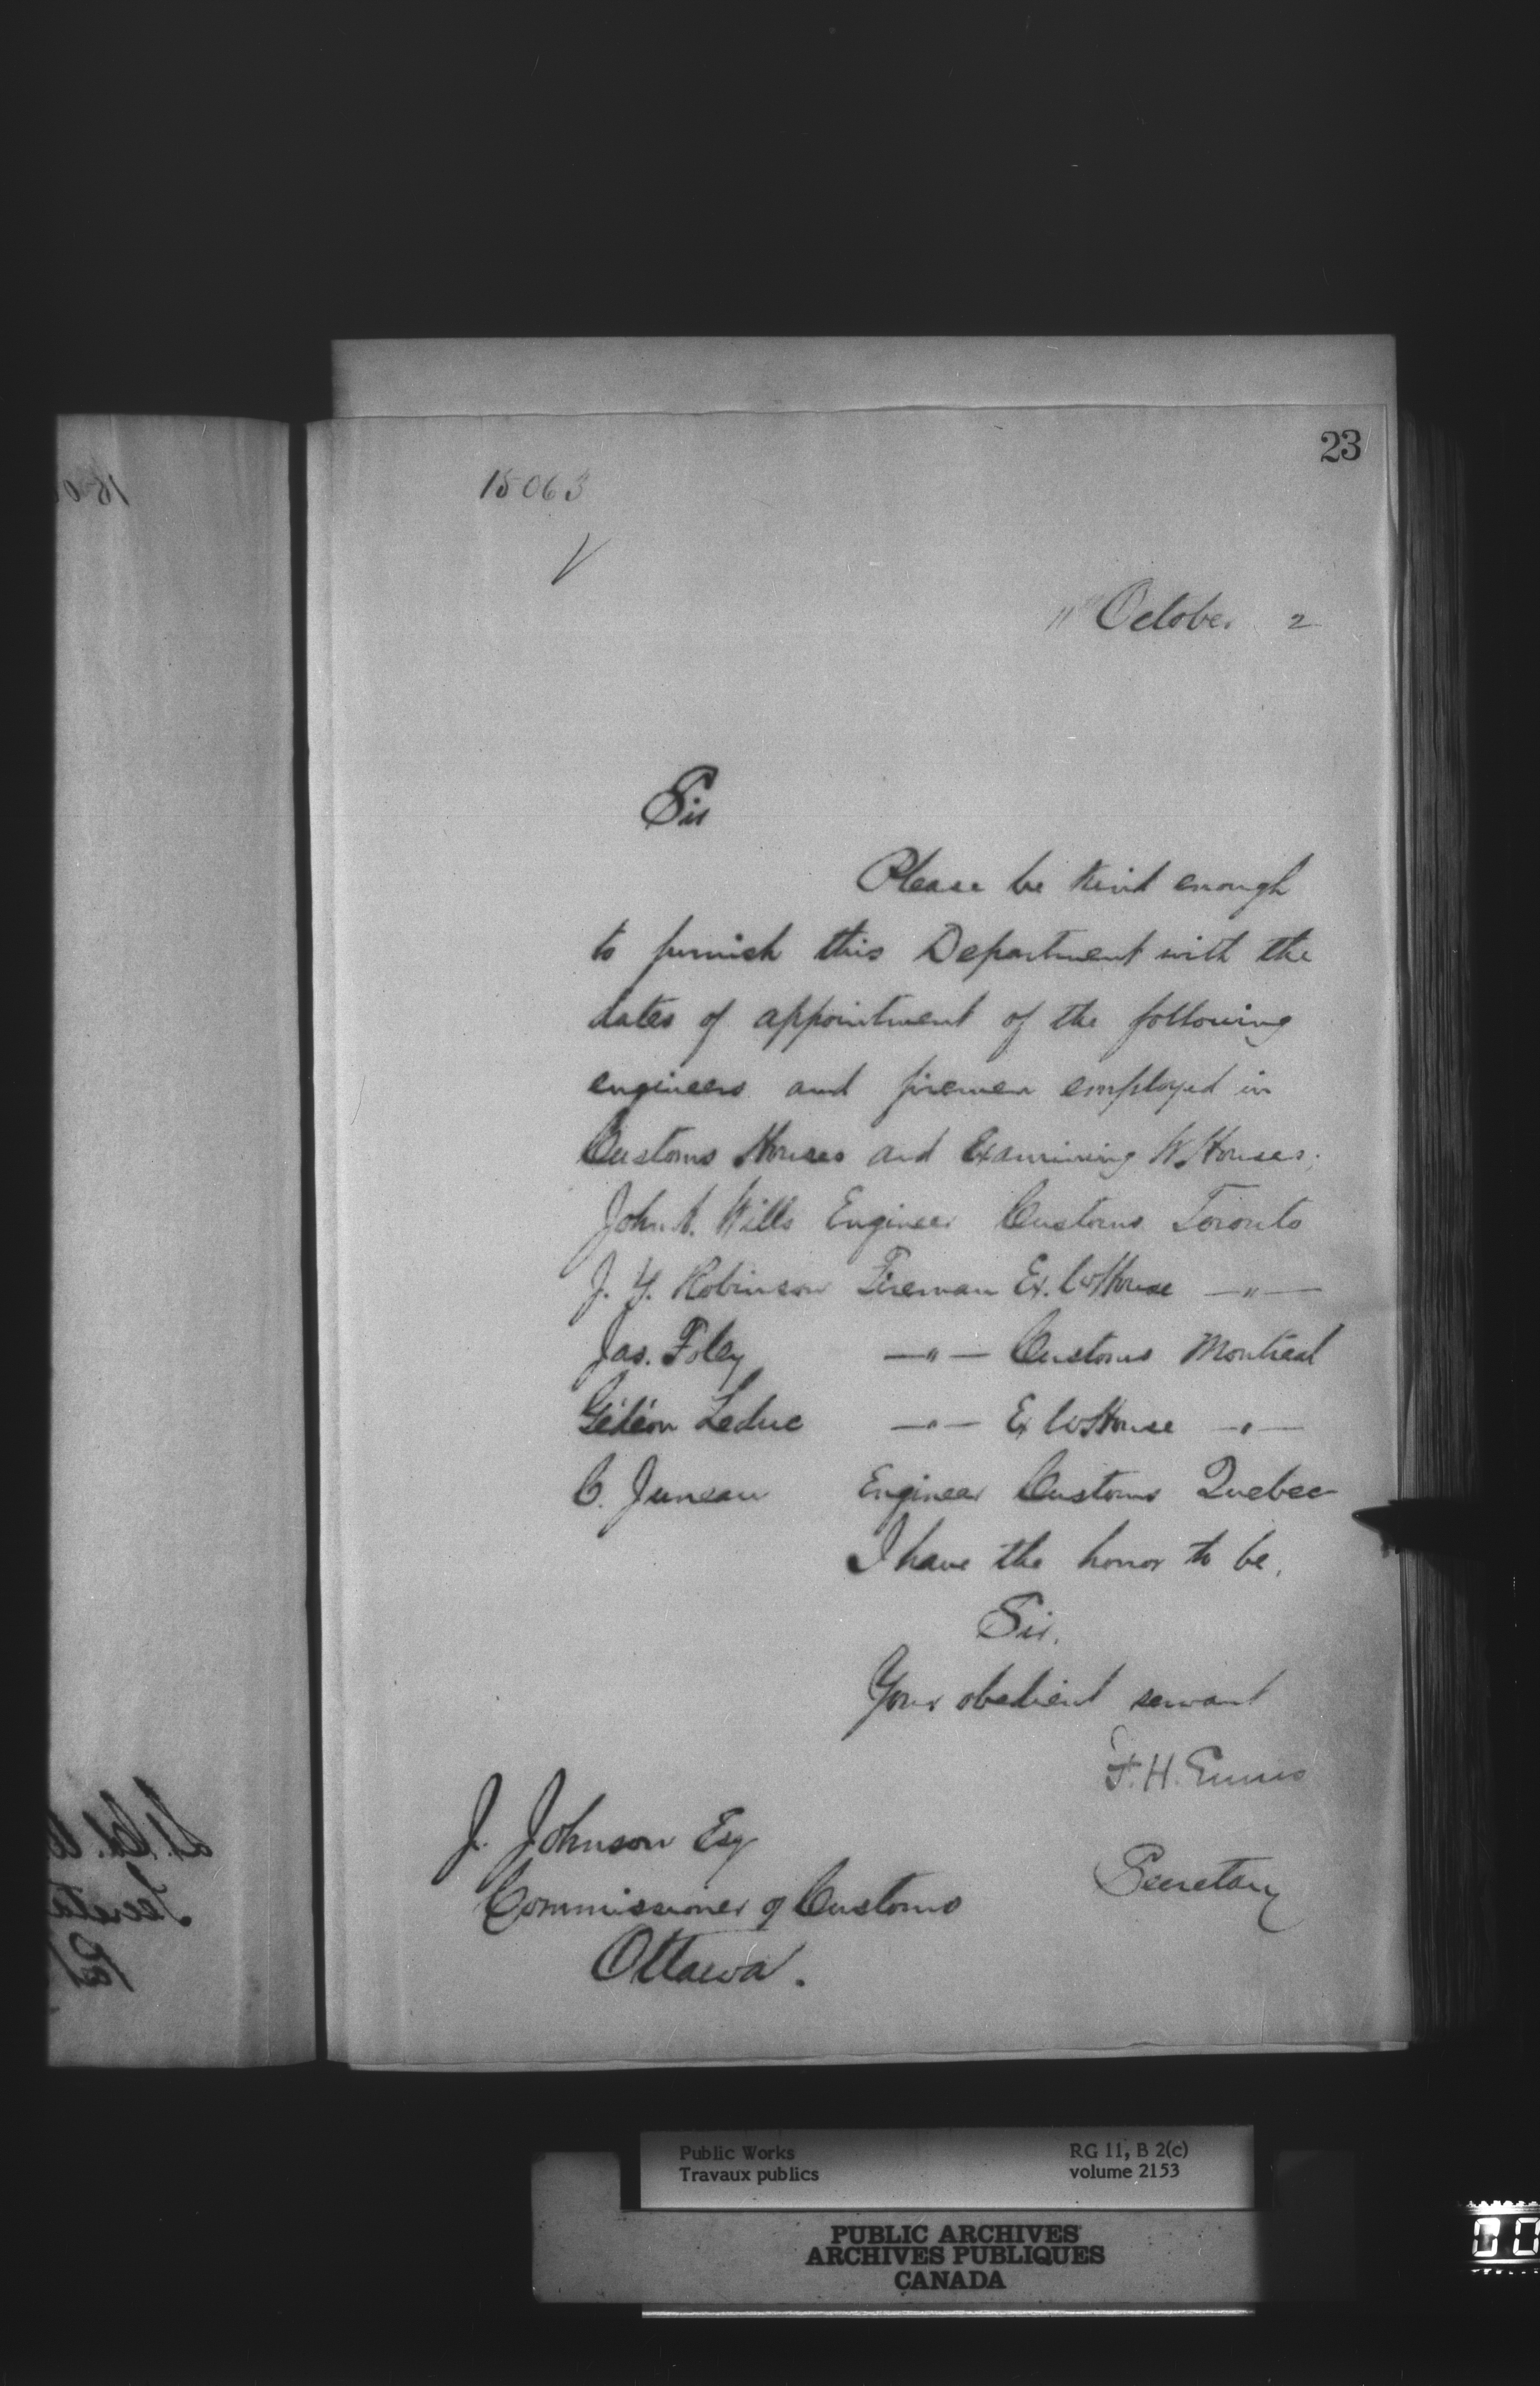 23
15063
11th October 2
Sir
Please be kind enough
to furnish this Department with the
dates of appointment of the following
engineers and firemen employed in
Customs Houses and Examining W. Houses;
John A. Wills Engineer Customs Toronto
J. Y. Robinson Fireman Ex. W House —"—
Jas. Foley —"— Customs Montreal
Gédéon Leduc —"— Ex W House —"—
C. Juneau Engineer Customs Quebec
I have the honor to be,
Sir,
Your obedient servant
F. H. Ennis
Secretary
J. Johnson Esq
Commissioner of Customs
Ottawa.
Public Works
Travaux publics
RG 11, B 2(c)
volume 2153
PUBLIC ARCHIVES
ARCHIVES PUBLIQUES
CANADA
00